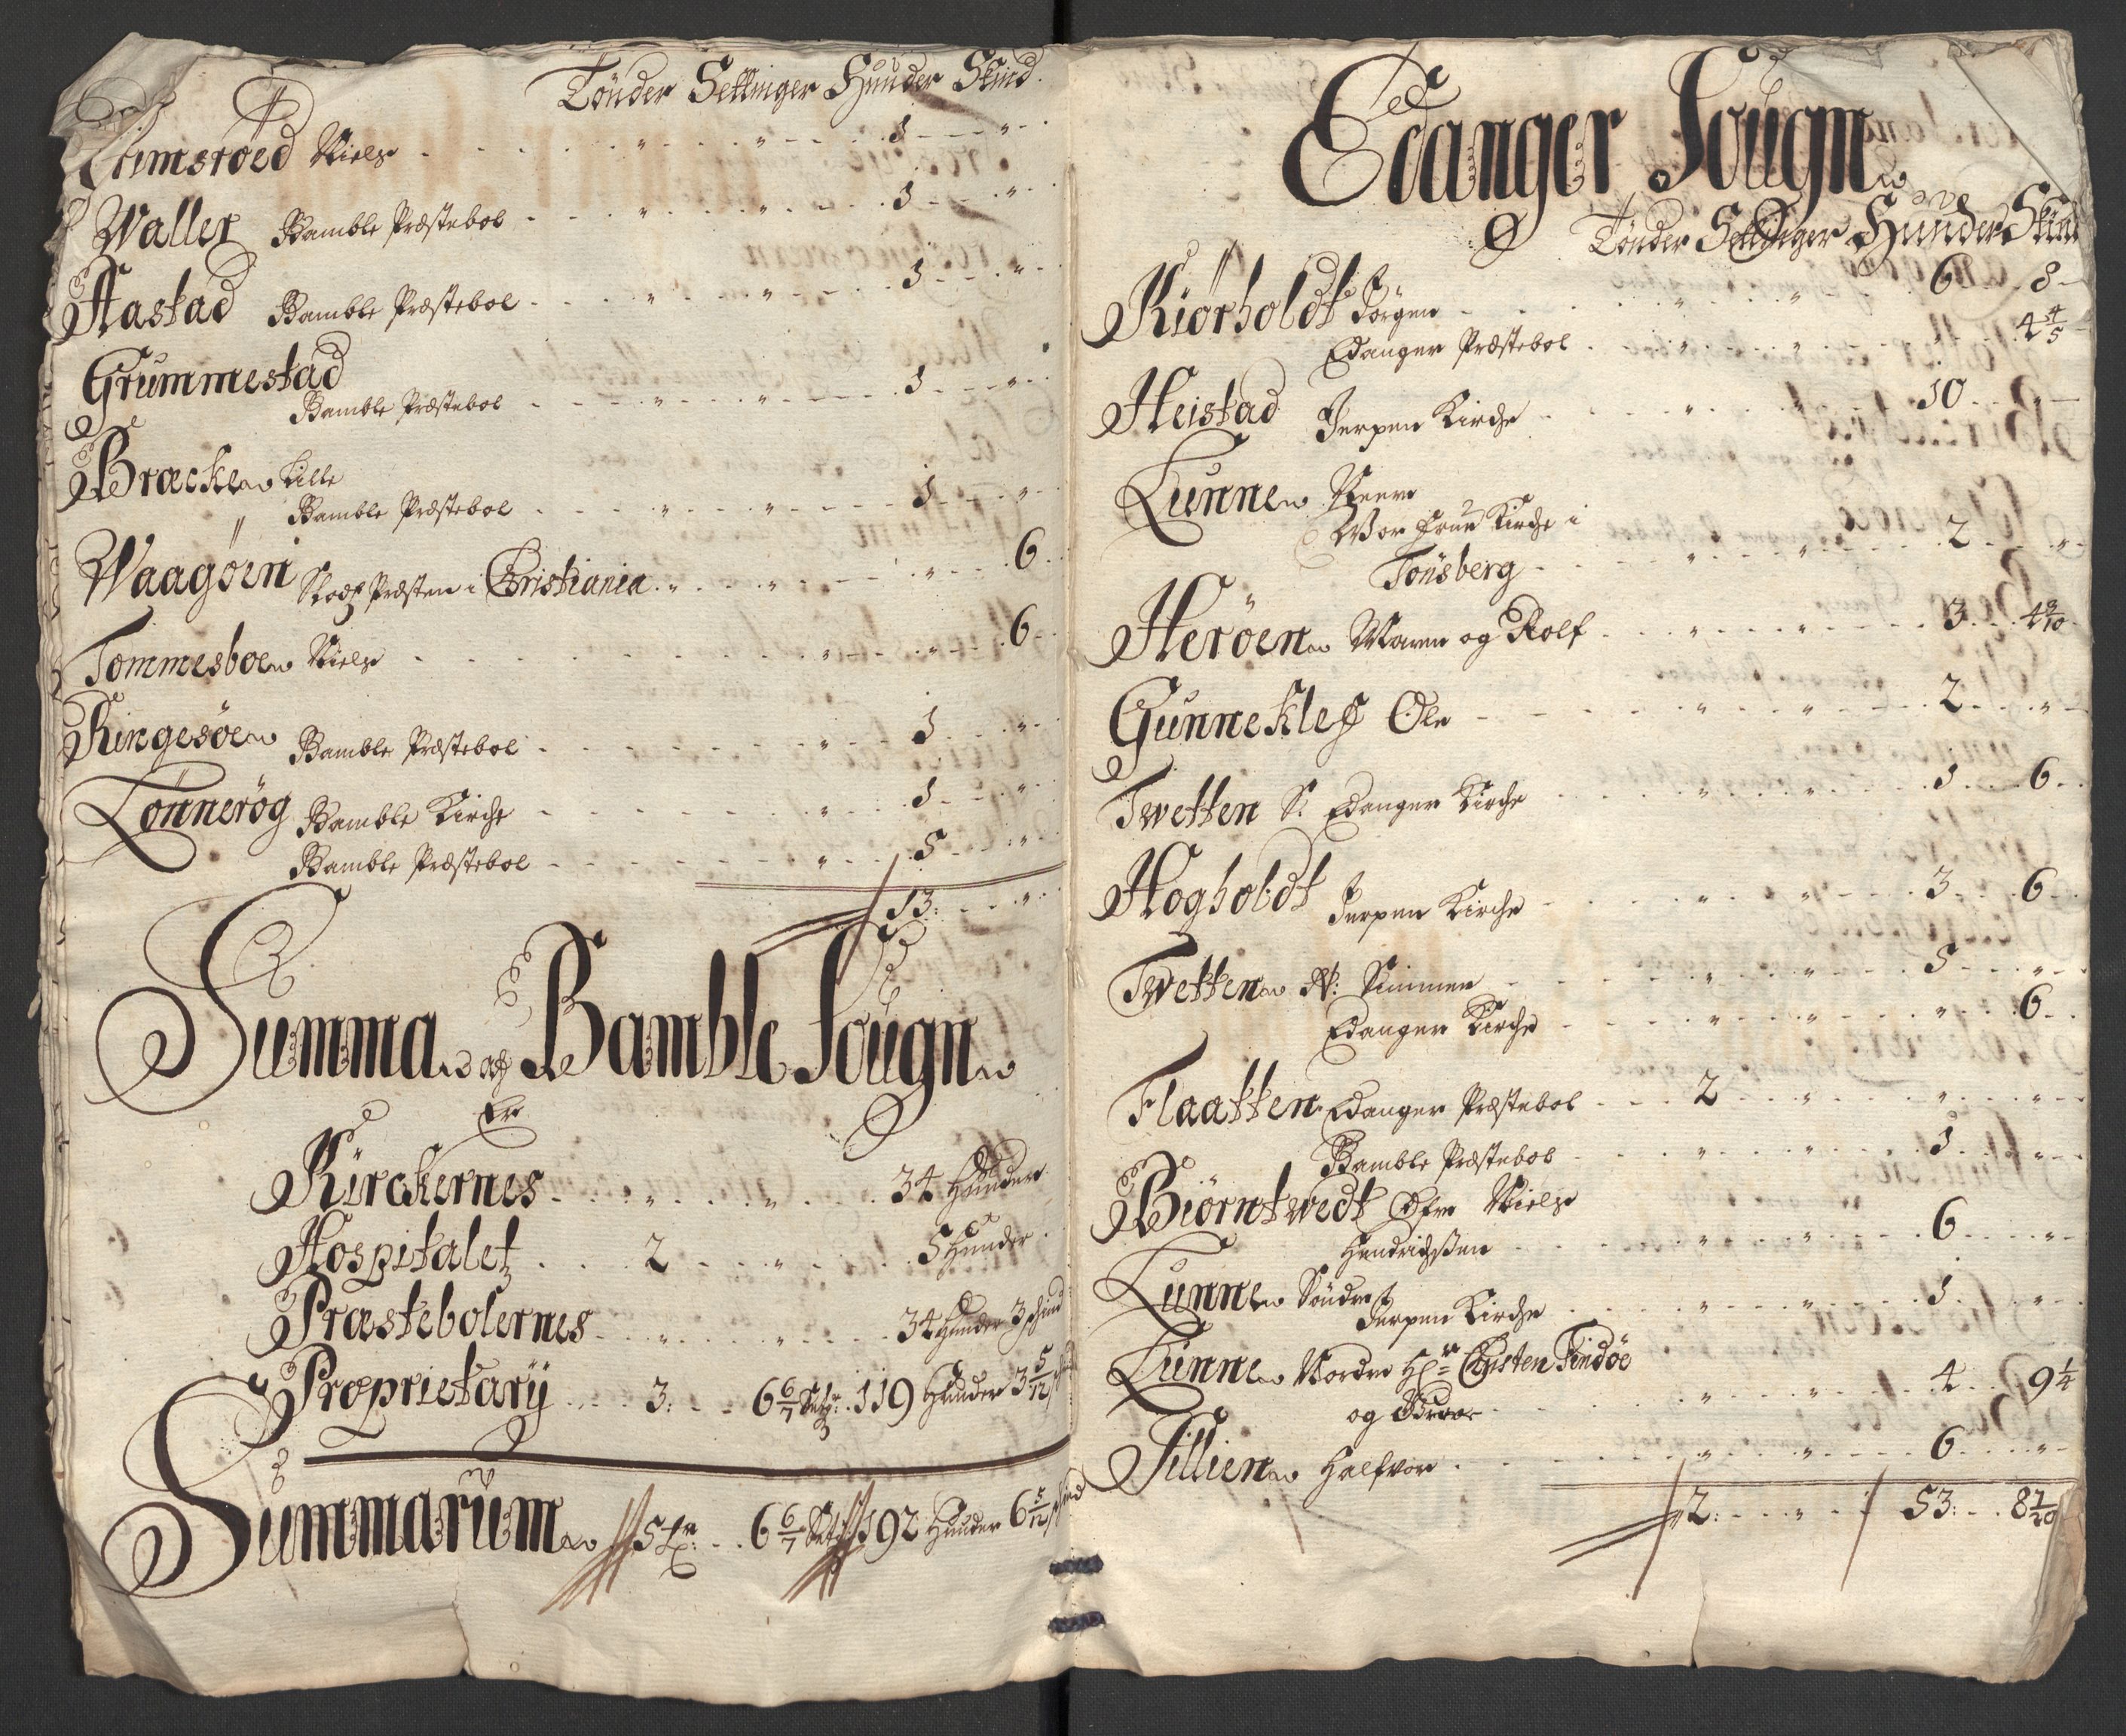 Tønder Settinger Hunder Skind.
Niels - - - " - - " - - 1 - - - " -
Waller Bamble Præstebol - - - " - - " - - 1 - - " -
Aastad Bamble Præstebol - - - " - - " - - 1 - - " -
Grummestad
Bamble Præstebol - - - " - - " - - 1 - - " -
Bræcke Lille
Bamble Præstebol - - - " - - " - - 1 - - " -
Waagøen Præsten i Christiania " - - " - - " - - 6
Tommesboe Niels - - - " - - " - - 6
Ringesøe Bamble Præstebol - - - " - - 1 - - " -
Tønnerøg Bamble Kirche - - - " - - 1 - - " -
Bamble Præstebol - - - " - - 5 - - " -
13: - - " -
Summa af Bamble Sougn
Er
Kirckernes - - " - - " - - 34 Hunder
Hospitalet - - 2 - - " - - 5 Hunder
Præstebolernes - - " - - " - - 34 Hunder 3 schind
Proprietarÿ - - 3: - - 6 6/7 Setr: 119 Hunder 3 5/12
Summarum 5 tr: - - 6 6/7 Set 192 Hunder 6 5/12
Edanger Sougn
Tønder Settinger Hunder Skind
Kiørholdt Jørgen - - - " - - " - - 6 - - 8 -
Edanger Præstebol - - " - - " - - " - - 4 4/5
Heistad Jerpen Kirche - - " - - " - - 10 - - " -
Lunne Neere
Wor Frue Kirche i
Tønsberg - - " - - " - - 2 - - " -
Herøen Maren og Rolf - - " - - " - - 3 - - 4 9/10
Gunneklef Ole - - " - - " - - 2 - - " -
Twetten S: Edanger Kirche - - " - - " - - 1 - - 6 -
Hogholdt Jerpen Kirche - - " - - " - - 3 - - 6 -
Twetten N: Simmen - - " - - " - - 5 - - " -
Edanger Kirche - - " - - " - - " - - 6 -
Flaatten Edanger Præstebol - - 2 - - " - - " - - " -
Bamble Præstebol - - " - - " - - 1 - - " -
Biørntwedt Øfre Niels
Hendrichsen - - " - - " - - 6 - - " -
Lunne Søndre
Jerpen Kirche - - " - - " - - 1 - - " -
Lunne Nordre Hr: Christen Findøe
og - - " - - " - - 4 - - 9 1/4
Tillien Halfvor - - " - - " - - 6 - - " -
2: - - " - - 53: - - 8 1/20